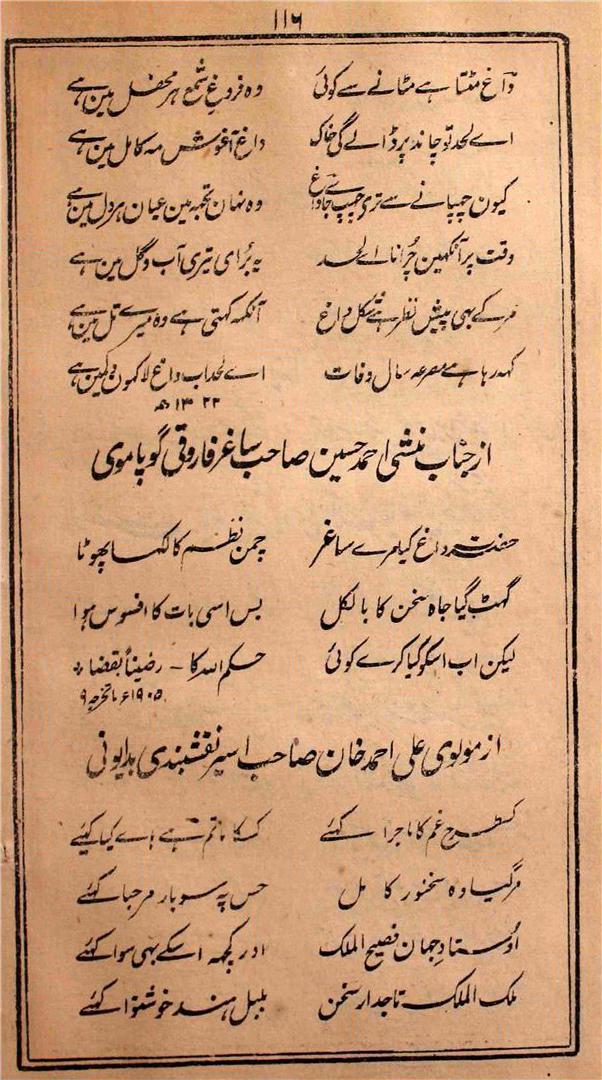 ۱۱۶
داغ مٹتا ہے مٹانے سے کوئی وہ فروغِ شمع ہر محفل مین ہے
اے لحد تو چاند پر ڈالے گی خاک داغ آغوشِ مہ کامل مین ہے
کیون چھپانے سے تری چھپ جائے داغ وہ نہان تجہہ مین عیان ہر دل مین ہے
وقت پر آنکھین چُرانا اے لحد یہ بُرائی تیری آب و گل مین ہے
مر کے بھی پیش نظر ہے شکل داغ آنکہہ کہتی ہے وہ میرے تل مین ہے
کہہ رہا ہے مصرعہ سال وفات اے لحد اب داغ لاکہون دلمین ہے
۱۳۲۲ھ
از جناب منشی احمد حسین صاحب ساغر فاروقی گوپاموی
حضرت داغ کیا مرے ساغر چمن نظم کا لکہا پھوٹا
گھٹ گیا جاہ سخن کا بالکل بس اسی بات کا افسوس ہوا
لیکن اب اسکو کیا کرے کوئی حکم اللہ کا ۔ رضینا بقضا
۱۹۰۵ء بتخرجہ ۹
از مولوی علی احمد خان صاحب اسیر نقشبندی بدایونی
کسطرح غم کا ماجرا کہئے کسکا ماتم ہے ہاے کیا کہئے
مر گیا وہ سخنور کامل جس پہ سو بار مرحبا کہئے
اوستاد جہان فصیح الملک اور کچہہ اسکے بھی سوا کہئے
ملک الملک تاجدار سخن بلبل ہند خوشنوا کہئے